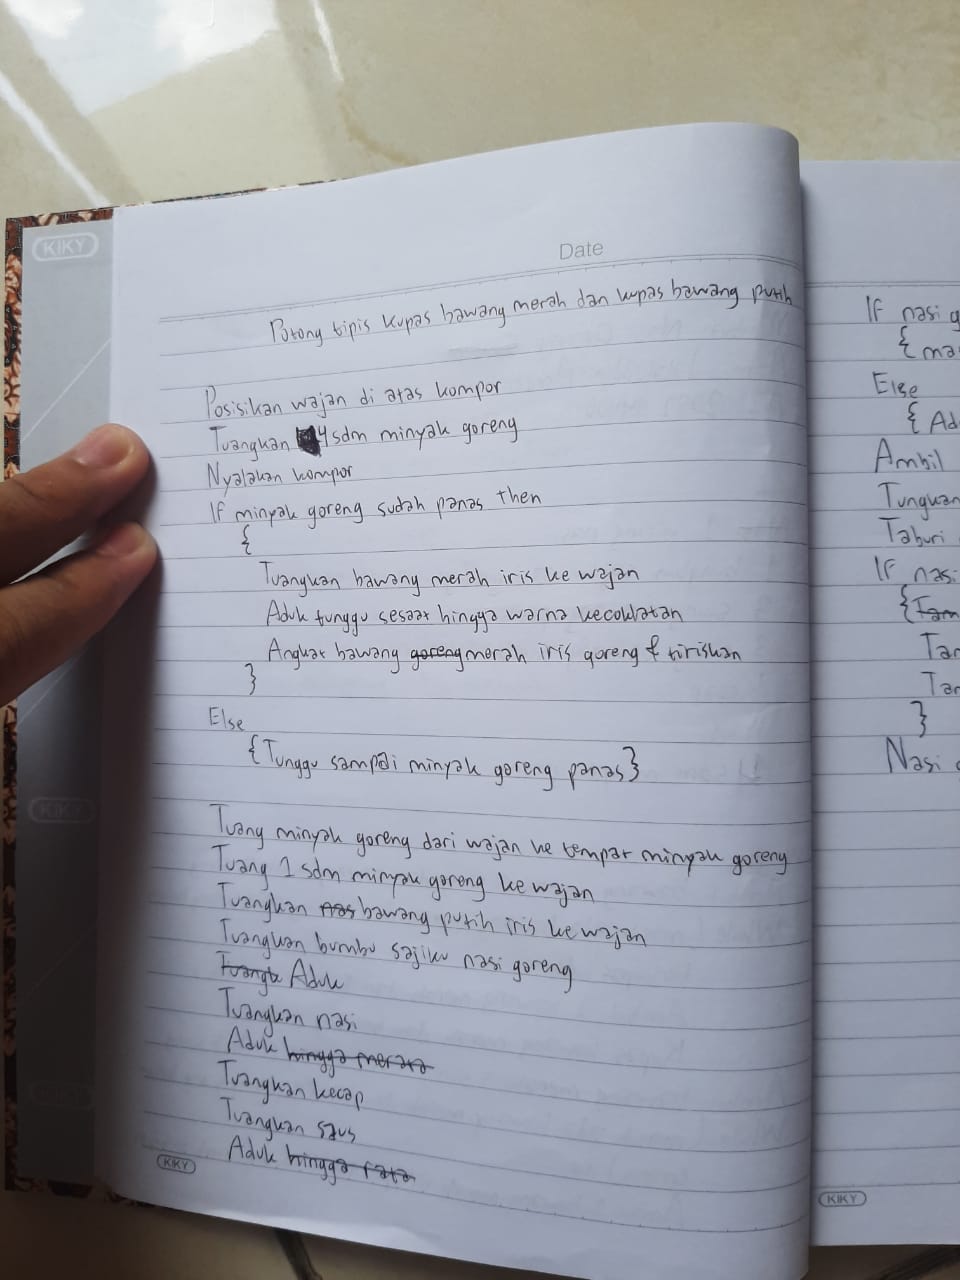 KIKY
Date
Potong tipis kupas bawang merah dan kupas bawang putih
Posisikan wajan di atas kompor
Tuangkan 4 sdm minyak goreng
Nyalakan kompor
If minyak goreng sudah panas then
{
Tuangkan bawang merah iris ke wajan
Aduk tunggu sesaat hingga warna kecoklatan
Angkat bawang goreng merah iris goreng & tiriskan
}
Else
{Tunggu sampai minyak goreng panas}
Tuang minyak goreng dari wajan ke tempat minyak goreng
Tuang 1 sdm minyak goreng ke wajan
Tuangkan bawang putih iris ke wajan
Tuangkan bumbu sajiku nasi goreng
Tuangk Aduk
Tuangkan nasi
Aduk hingga merata
Tuangkan kecap
Tuangkan saus
Aduk hingga rata
KIKY
If nasi g
{ ma
Else
{ Ad
Ambil
Tungkan
Taburi
If nasi
{Tam
Tar
Tar
}
Nasi
KIKY